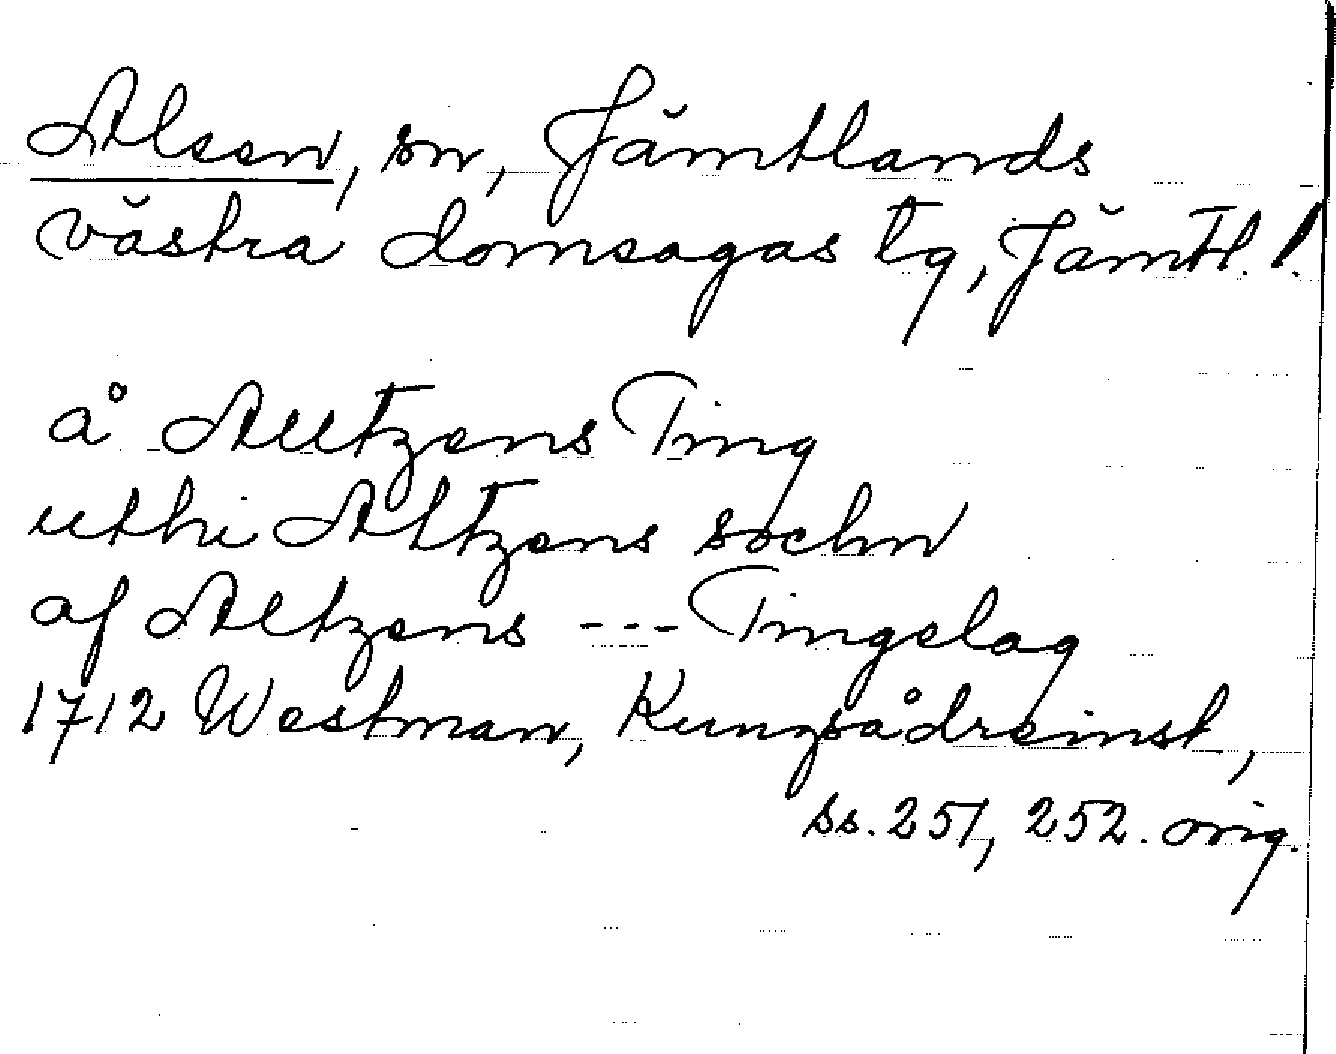 Alsen, sn, Jämtlands
västra domsagas tg, Jämtl. l.
å Alltzens Ting
uthi Altzens sochn
af Altzens --- Tingelag
1712 Westman, Kungsådreinst,
ss. 251, 252. orig.